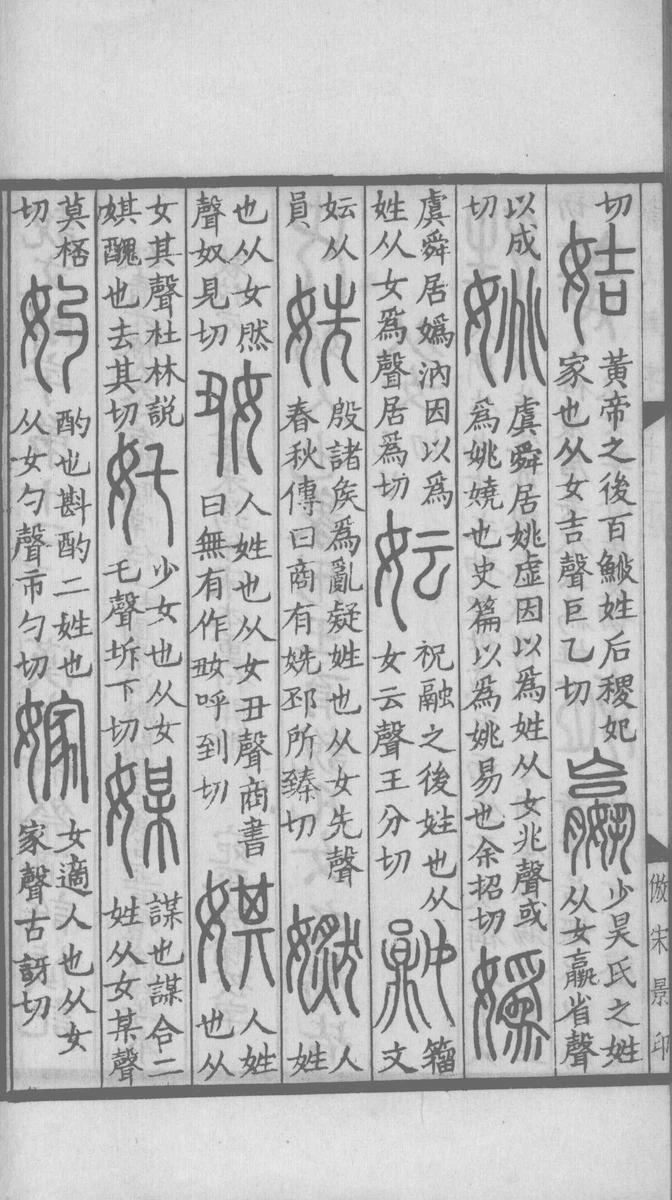 切
姞
黃帝之後百鮌姓后稷妃
家也从女吉聲巨乙切
嬴
少昊氏之姓
从女羸省聲
以成
切
姚
虞舜居姚虛因以爲姓从女兆聲或
爲姚嬈也史篇以爲姚易也余招切
嬀
虞舜居嬀汭因以爲
姓从女爲聲居爲切
妘
祝融之後姓也从
女云聲王分切
𡣬
籀
文
妘从
員
姺
殷諸矦爲亂疑姓也从女先聲
春秋傳曰商有姺邳所臻切
㜣
人
姓
也从女然
聲奴見切
𡚽
人姓也从女丑聲商書
曰無有作𡚽呼到切
娸
人姓
也从
女其聲杜林說
娸醜也去其切
奼
少女也从女
乇聲坼下切
媒
謀也謀合二
姓从女某聲
莫桮
切
妁
酌也斟酌二姓也
从女勺聲市勺切
嫁
女適人也从女
家聲古訝切
倣宋景印